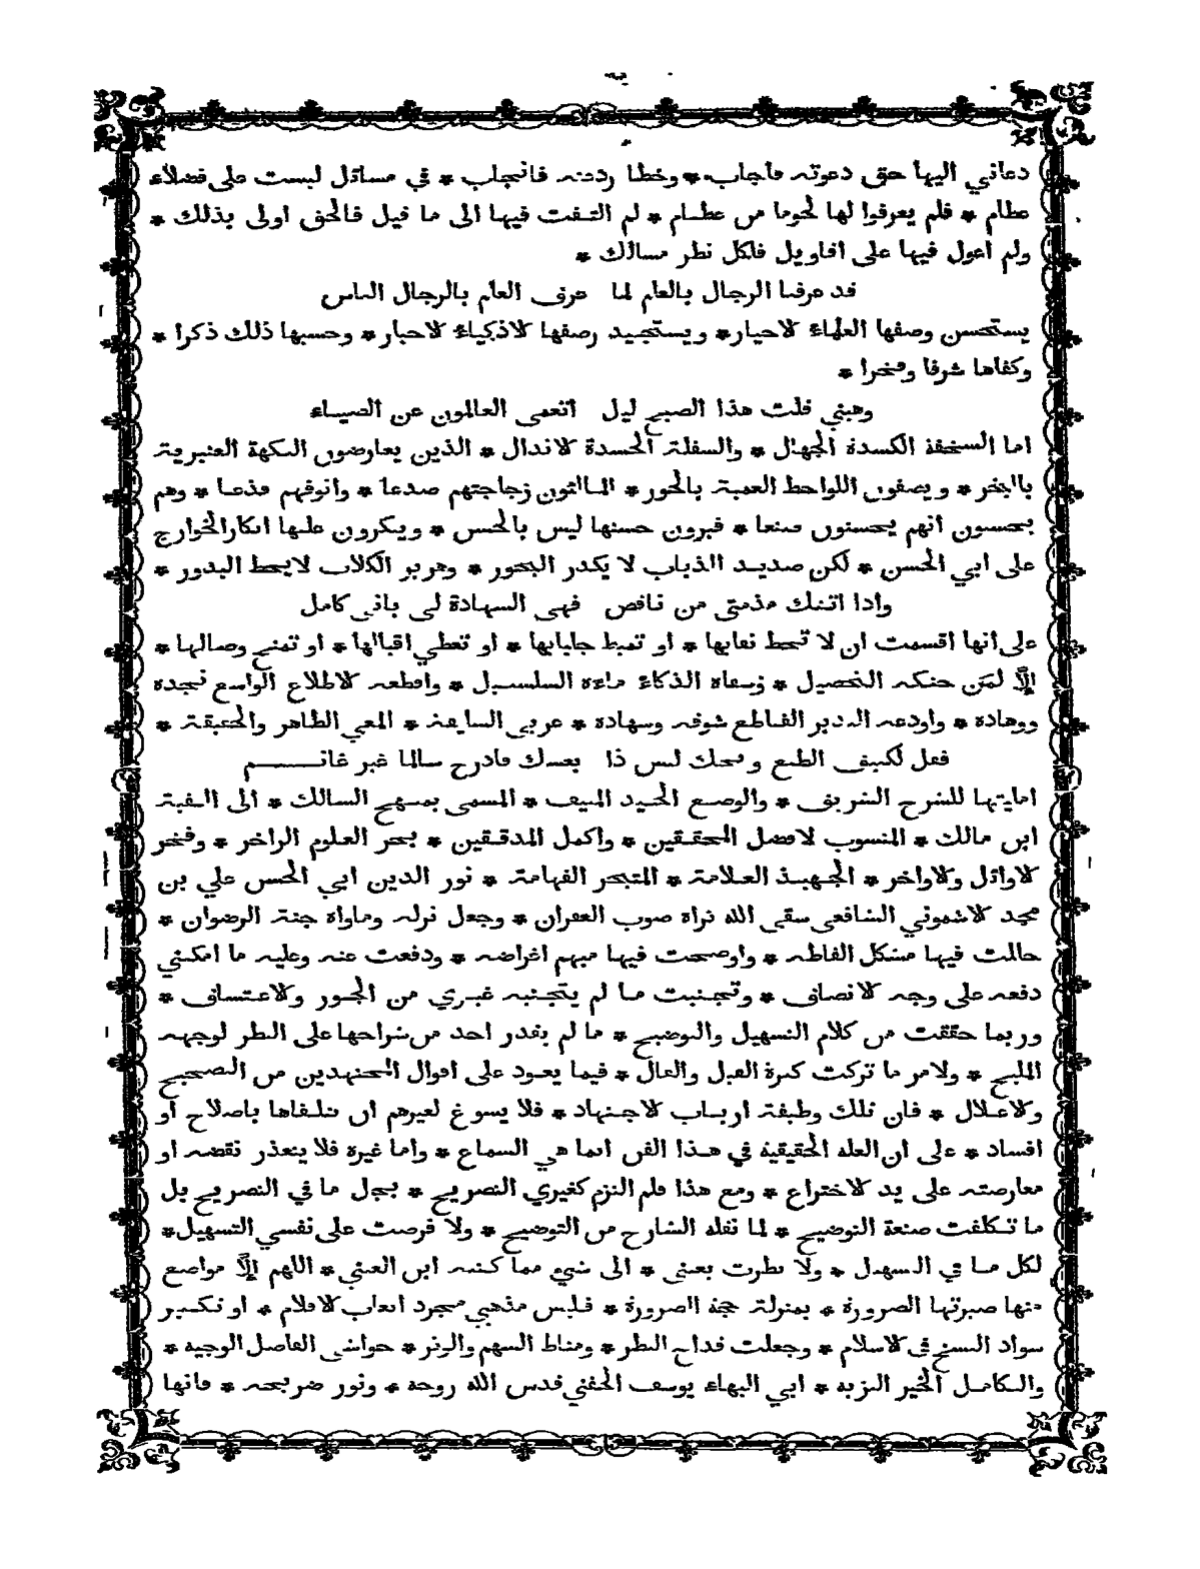 دعاني اليها حق دعوته فاجاب * وخطا ردعته فانجاب * في مسائل ليست على فضلاء
عظام * فلم يعرفوا لها لحوما من عظام * لم التفت فيها الى ما قيل فالحق اولى بذلك *
ولم اعول فيها على اقاويل فلكل نظر مسالك *
قد عرفنا الرجال بالعلم لما عرف العلم بالرجال الناس
يستحسن وصفها العلماء الاخيار * ويستجيد رصفها الاذكياء الاحبار * وحسبها ذلك ذكرا *
وكفاها شرفا وفخرا *
وهبني قلت هذا الصبح ليل ايعمى العالمون عن الضياء
اما السخفة الكسدة الجهال * والسفلة الحسدة الانذال * الذين يعارضون النكهة العنبرية
بالبخر * ويصفون اللواحظ العمية بالحور * المالئون زجاجتهم صدعا * وانوفهم جدعا * وهم
يحسبون انهم يحسنون صنعا * فيرون حسنها ليس بالحسن * وينكرون عليها انكار الخوارج
على ابي الحسن * لكن صديد الذباب لا يكدر البحور * وهرير الكلاب لا يحط البدور *
واذا اتتك مذمتي من ناقص فهي الشهادة لي باني كامل
على انها اقسمت ان لا تحط نقابها * او تميط جلبابها * او تعطي اقبالها * او تمنح وصالها *
الا لمن حنكه التحصيل * وسقاه الذكاء ماءه السلسبيل * واقطعه الاطلاع الواسع نجده
ووهاده * واودعه الدير القاطع شوقه وسهاده * عربي السليقة * المعي الظاهر والحقيقة *
فقل لكثيف الطبع ويحك ليس ذا بعشك فادرج سالما غير غانم
امليتها للشرح الشريف * والوضع الحميد المنيف * المسمى بمنهج السالك * الى الفية
ابن مالك * المنسوب لافضل المحققين * واكمل المدققين * بحر العلوم الزاخر * وفخر
الاوائل والاواخر * الجهبذ العلامة * المتبحر الفهامة * نور الدين ابي الحسن علي بن
محمد الاشموني الشافعي سقى الله ثراه صوب الغفران * وجعل نزله وماواه جنة الرضوان *
حللت فيها مشكل الفاظه * واوضحت فيها مبهم اغراضه * ودفعت عنه وعليه ما امكنني
دفعه على وجه الانصاف * وتجنبت ما لم يتجنبه غيري من الجور والاعتساف *
وربما حققت من كلام التسهيل والتوضيح * ما لم يقدر احد من شراحها على النظر لوجهه
المليح * ولامر ما تركت كثرة القيل والقال * فيما يعود على اقوال المجتهدين من التصحيح
والاعلال * فان تلك وظيفة ارباب الاجتهاد * فلا يسوغ لغيرهم ان يتلقاها باصلاح او
افساد * على ان العلة الحقيقية في هذا الفن انما هي السماع * واما غيره فلا يتعذر نقضه او
معارضته على يد الاختراع * ومع هذا فلم التزم كغيري التصريح * بجل ما في التصريح بل
ما تكلفت صنعة التوضيح * لما نقله الشارح من التوضيح * ولا فرضت على نفسي التسهيل *
لكل ما في التسهيل * ولا نظرت بعيني * الى شيء مما كتبه ابن العيني * اللهم الا مواضع
منها صيرتها الضرورة * بمنزلة حجة الصرورة * فليس مذهبي مجرد اتعاب الاقلام * او تكثير
سواد النسخ في الاسلام * وجعلت قداح النظر * ومناط السهم والوتر * حواشي الفاضل الوجيه *
والكامل الخير النزيه * ابي البهاء يوسف الحفني قدس الله روحه * ونور ضريحه * فانها